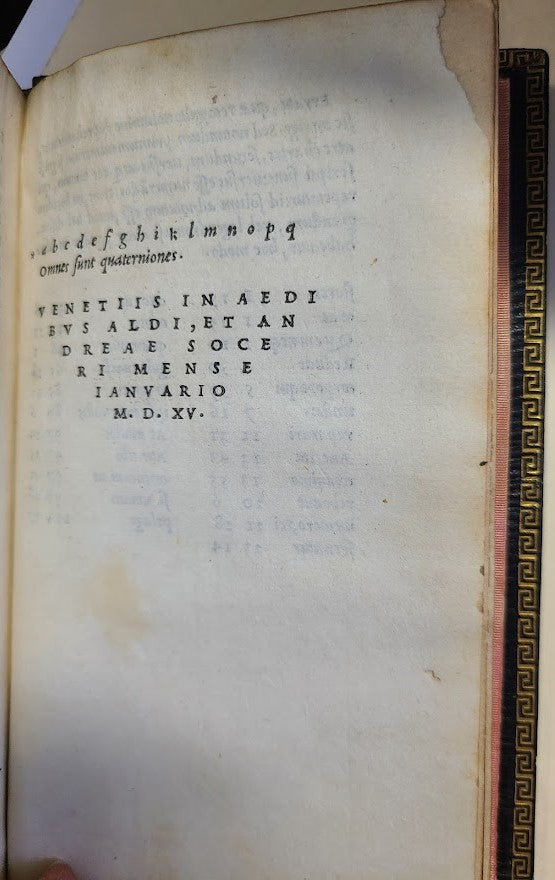 a b c d e f g h i k l m n o p q
Omnes sunt quaterniones.
VENETIIS IN AEDI
BVS ALDI, ET AN
DREAE SOCE
RI MENSE
IANVARIO
M. D. XV.